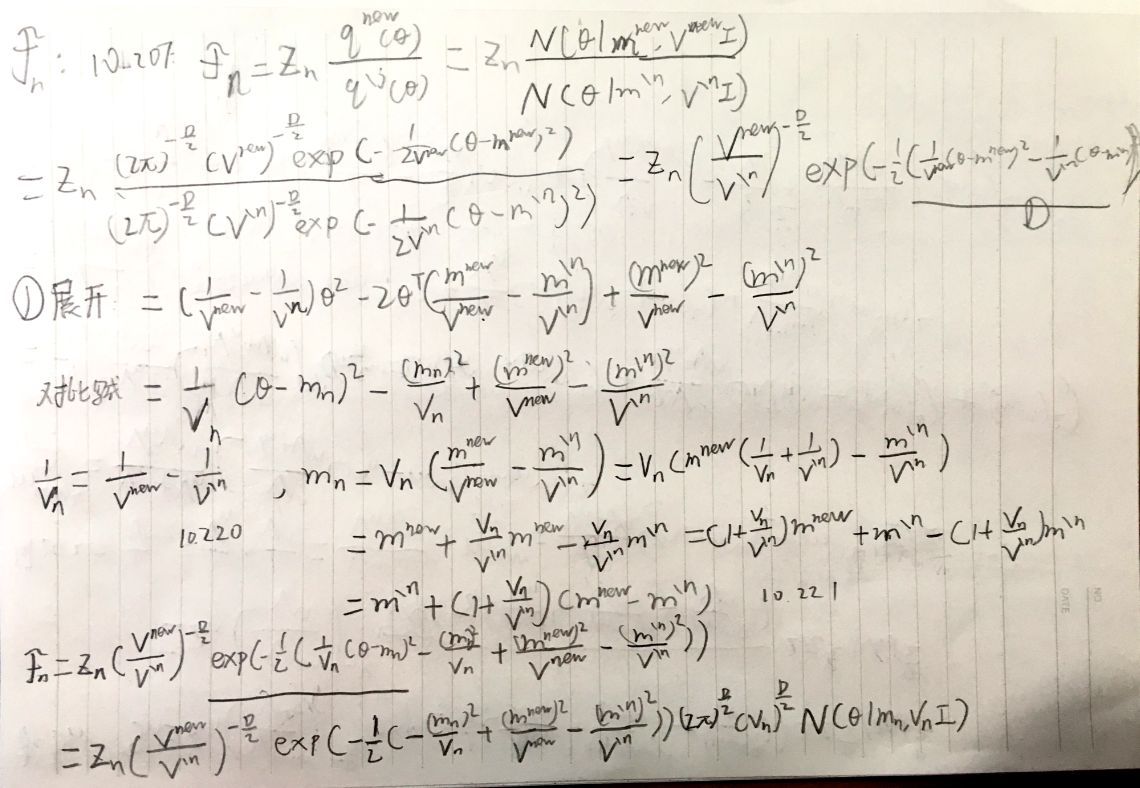 f̃_n: 10.207 f̃_n = Z_n q^{new}(θ) / q^{\j}(θ) = Z_n N(θ|m^{new}, V^{new}I) / N(θ|m^{\n}, V^{\n}I)
= Z_n (2π)^{-D/2} (V^{new})^{-D/2} exp(-1/(2V^{new}) (θ-m^{new})^2) / (2π)^{-D/2} (V^{\n})^{-D/2} exp(-1/(2V^{\n}) (θ-m^{\n})^2) = Z_n (V^{new}/V^{\n})^{-D/2} exp{-1/2 (1/V^{new} (θ-m^{new})^2 - 1/V^{\n} (θ-m^{\n})^2)}
①
①展开 = (1/V^{new} - 1/V^{\n})θ^2 - 2θ^T(m^{new}/V^{new} - m^{\n}/V^{\n}) + (m^{new})^2/V^{new} - (m^{\n})^2/V^{\n}
= 1/V_n (θ-m_n)^2 - (m_n)^2/V_n + (m^{new})^2/V^{new} - (m^{\n})^2/V^{\n}
1/V_n = 1/V^{new} - 1/V^{\n}, m_n = V_n (m^{new}/V^{new} - m^{\n}/V^{\n}) = V_n (m^{new}(1/V_n + 1/V^{\n}) - m^{\n}/V^{\n})
10.220 = m^{new} + V_n/V^{\n} m^{new} - V_n/V^{\n} m^{\n} = (1+V_n/V^{\n})m^{new} + m^{\n} - (1+V_n/V^{\n})m^{\n}
= m^{\n} + (1+V_n/V^{\n})(m^{new} - m^{\n}) 10.221
f̃_n = Z_n (V^{new}/V^{\n})^{-D/2} exp(-1/2 (1/V_n (θ-m_n)^2 - (m_n)^2/V_n + (m^{new})^2/V^{new} - (m^{\n})^2/V^{\n}))
= Z_n (V^{new}/V^{\n})^{-D/2} exp(-1/2 (-(m_n)^2/V_n + (m^{new})^2/V^{new} - (m^{\n})^2/V^{\n})) (2π)^{D/2} (V_n)^{D/2} N(θ|m_n, V_nI)
NO
DATE